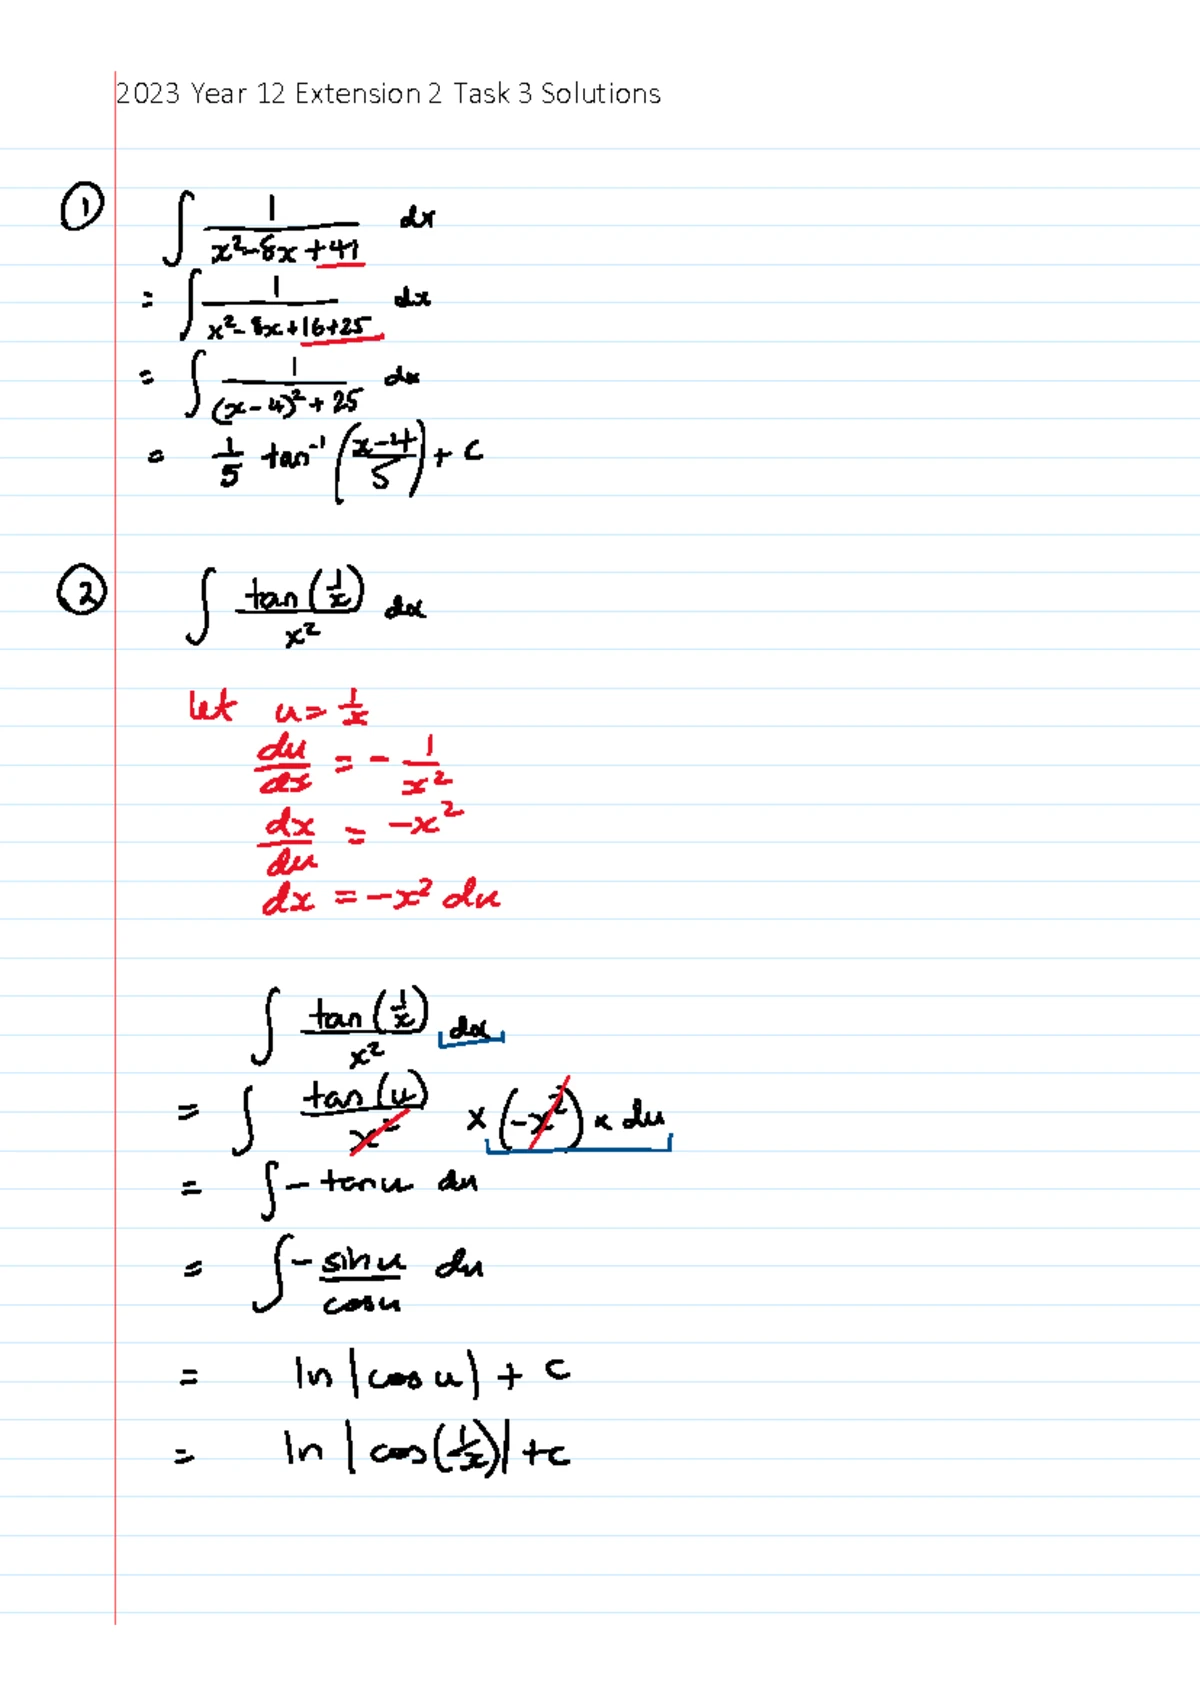 2023 Year 12 Extension 2 Task 3 Solutions
① ∫ 1/(x²-8x+41) dx
= ∫ 1/(x²-8x+16+25) dx
= ∫ 1/((x-4)²+25) dx
= 1/5 tan⁻¹((x-4)/5) + c
② ∫ tan(1/x)/x² dx
let u = 1/x
du/dx = - 1/x²
dx/du = -x²
dx = -x² du
∫ tan(1/x)/x² dx
= ∫ tan(u)/x² × (-x²) × du
= ∫ - tan u du
= ∫ - sin u/cos u du
= ln |cos u| + c
= ln |cos(1/x)| + c